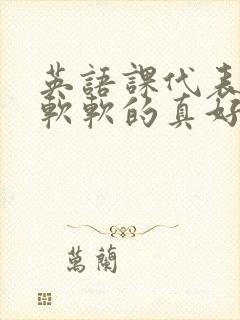 英語課代表
軟軟的真好
萬蘭